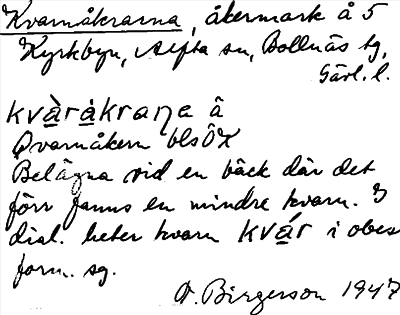 Kvarnåkrarna, åkermark å 5
Kyrkbyn, Alfta sn, Bollnäs tg,
Gävl. l.
kvàrákraṇa â
Qvarnåkern blsÖK
Belägna vid en bäck där det
förr fanns en mindre kvarn. I
dial. heter kvarn kvár i obest
form. sg.
A. Birgerson 1947